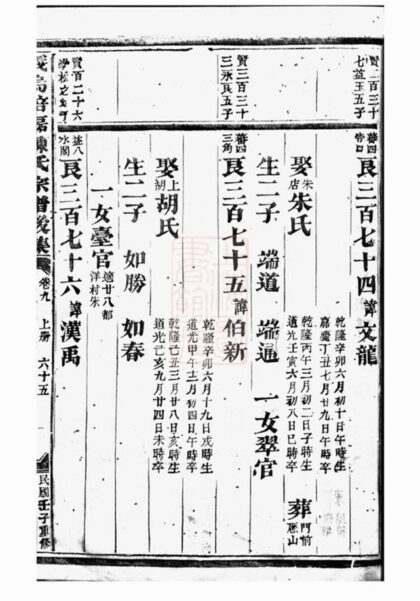 賢二百三十
七益玉五子
良三百七十四諱文龍
乾隆辛卯六月初十日午時生
嘉慶丁丑七月廿九日午時卒
娶朱店朱氏
乾隆丙午三月初二日子時生
道光壬寅六月初八日巳時卒
葬門前
山
生二子 端道 端通 一女翠官
賢三百三十
三永良五子
良三百七十五諱伯新
乾隆辛卯六月十九日戌時生
道光甲午三月初四日午時卒
娶上胡胡氏
乾隆己丑三月廿八日亥時生
道光己亥九月廿四日未時卒
生二子 如勝 如春
一女臺官適廿八都
洋村朱
賢百二十六
良三百七十六諱漢禹
義烏
陳氏宗譜後集 卷九 上册 六十五
民國壬子重修